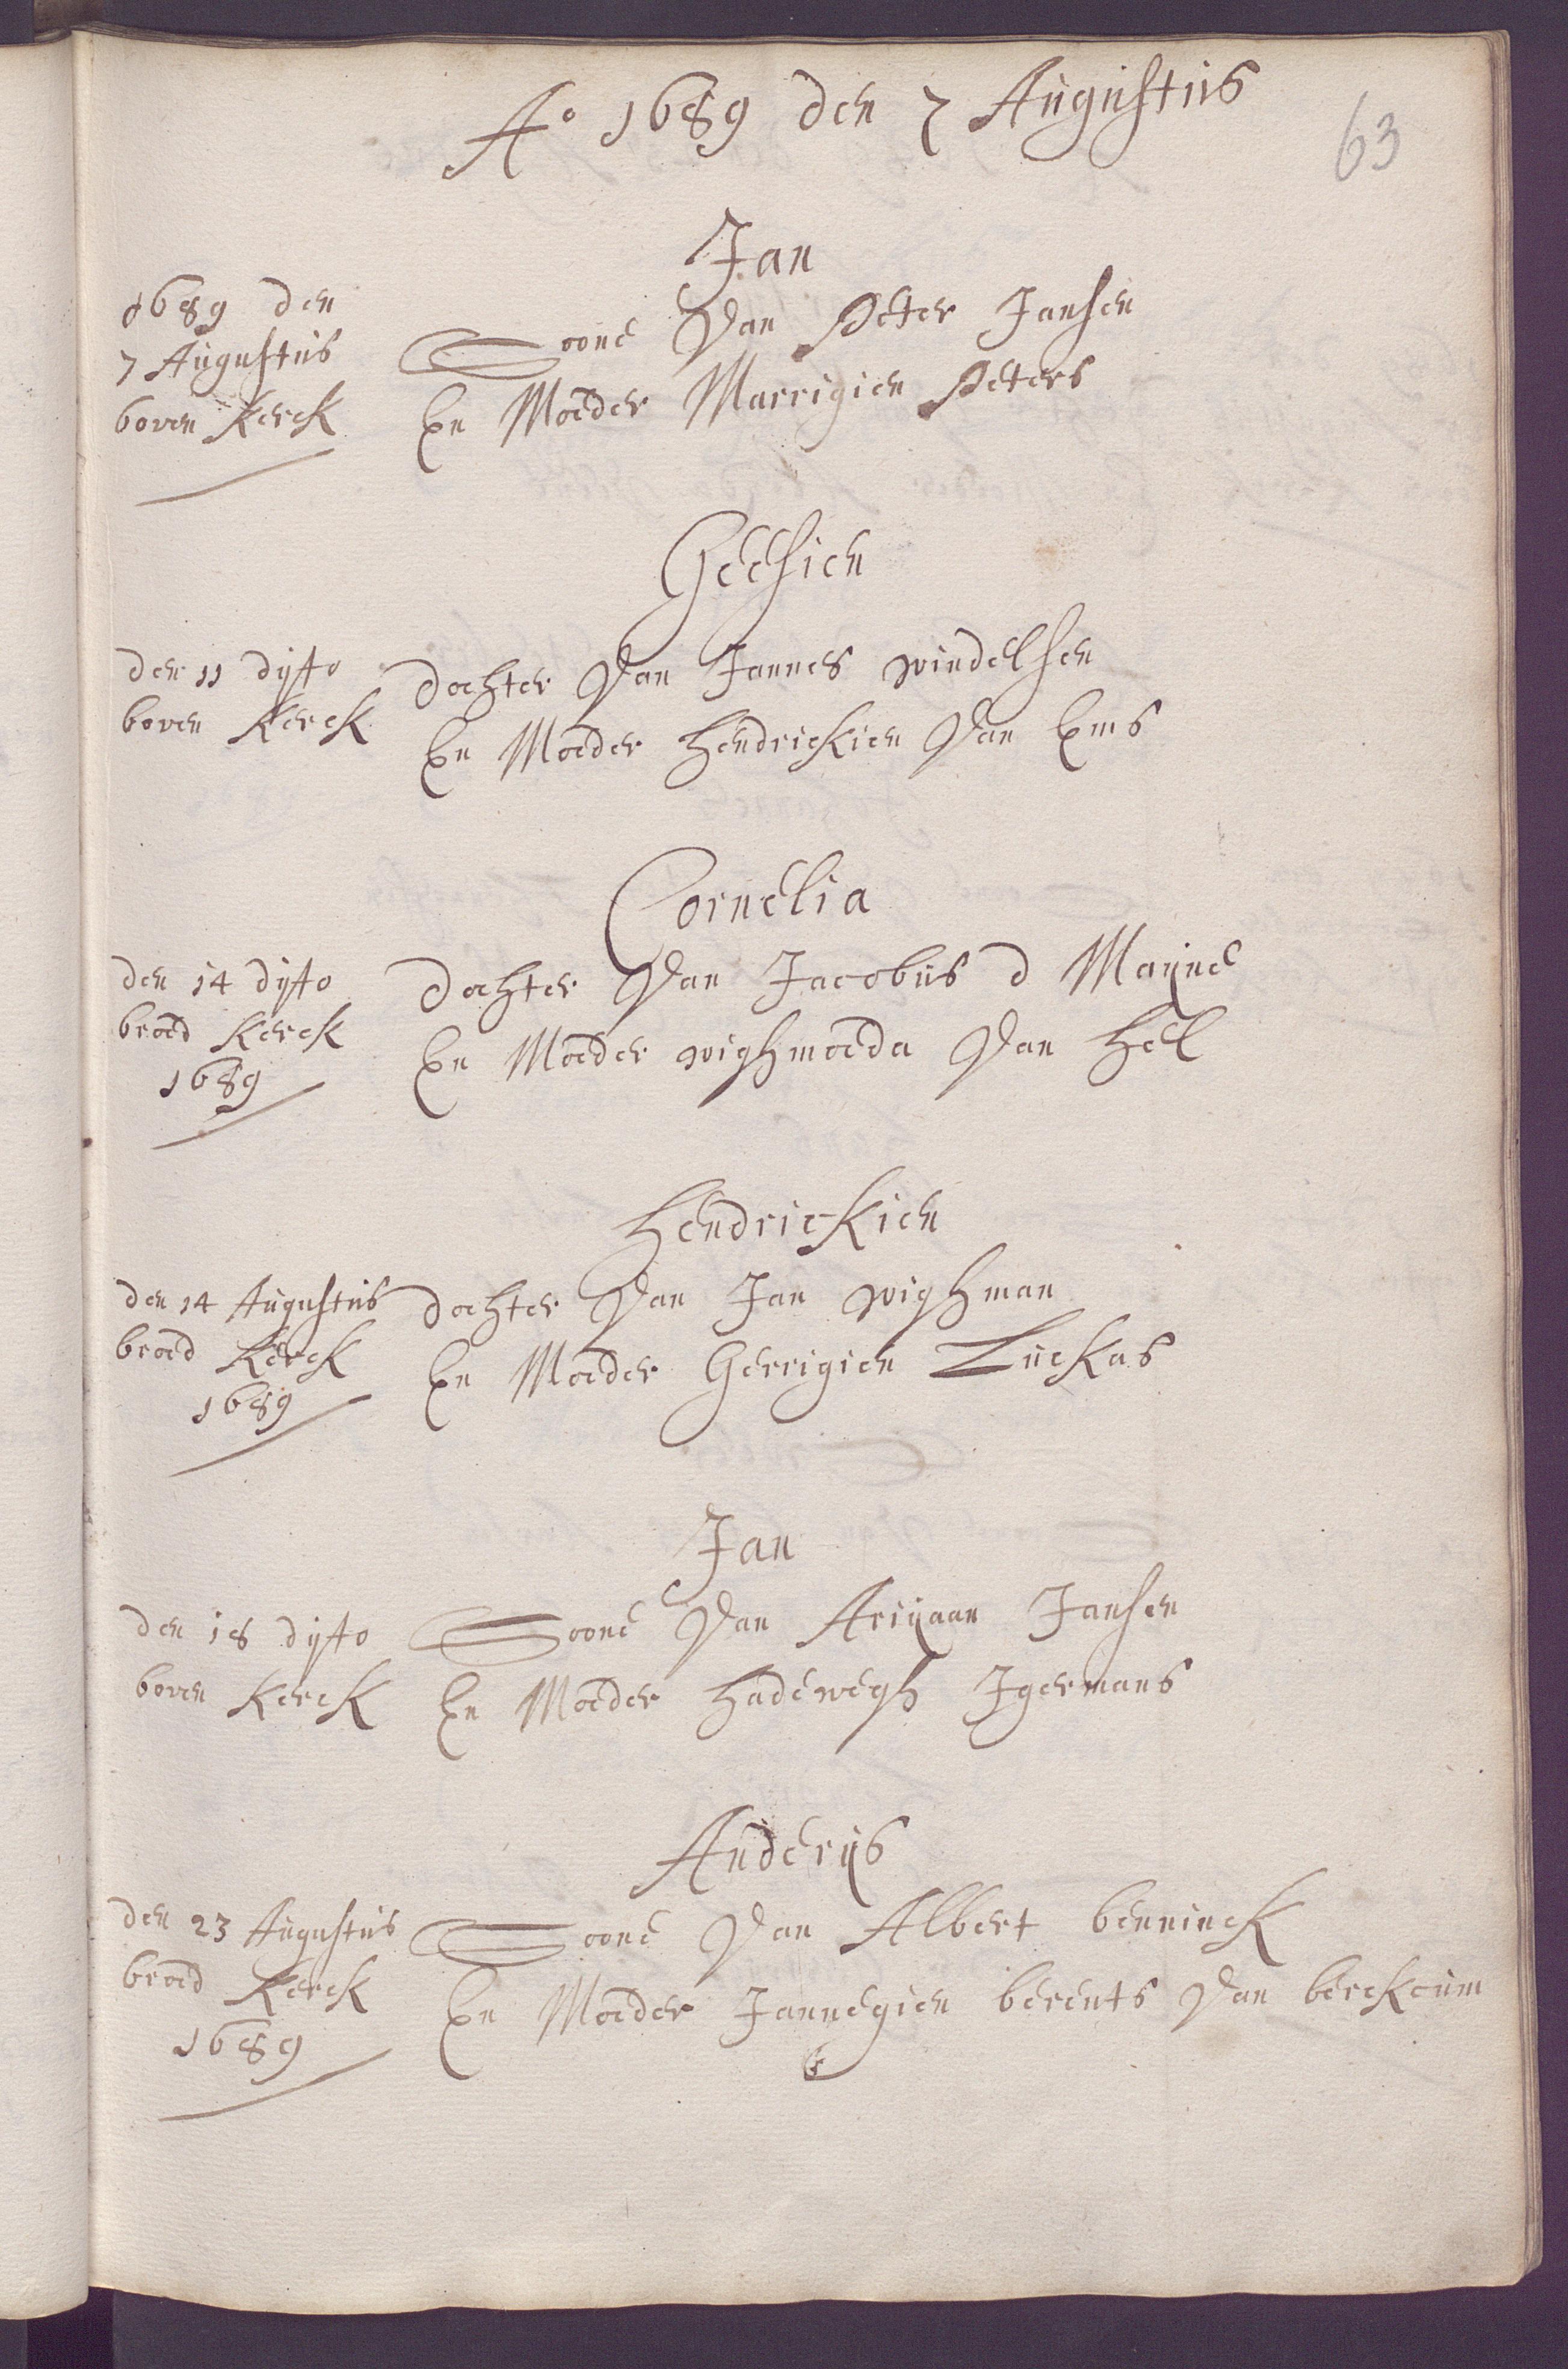 Ao 1689 den 7 Augustus
63
Jan
1689 den
7 Augustus
boven Kerck
Soone Van Peter Jansen
En Moeder Marrigien Peters
Geesien
den 11 dytto
boven Kerck
dochter Van Jannes windelsen
En Moeder Hendrickien Van Ems
Cornelia
den 14 dytto
broed Kerck
1689
dochter Van Jacobus d Mayne
En Moeder wighmoeda Van Hel
Hendrickien
den 14 Augustus
broed Kerck
1689
dochter Van Jan wighman
En Moeder Gerrigien Luckas
Jan
den 18 dytto
boven Kerck
Soone Van Ariyaan Jansen
En Moeder Hadewegh Igermans
Anderys
den 23 Augustus
broed Kerck
1689
Soone Van Albert benninck
En Moeder Jannegien berents Van berckcum